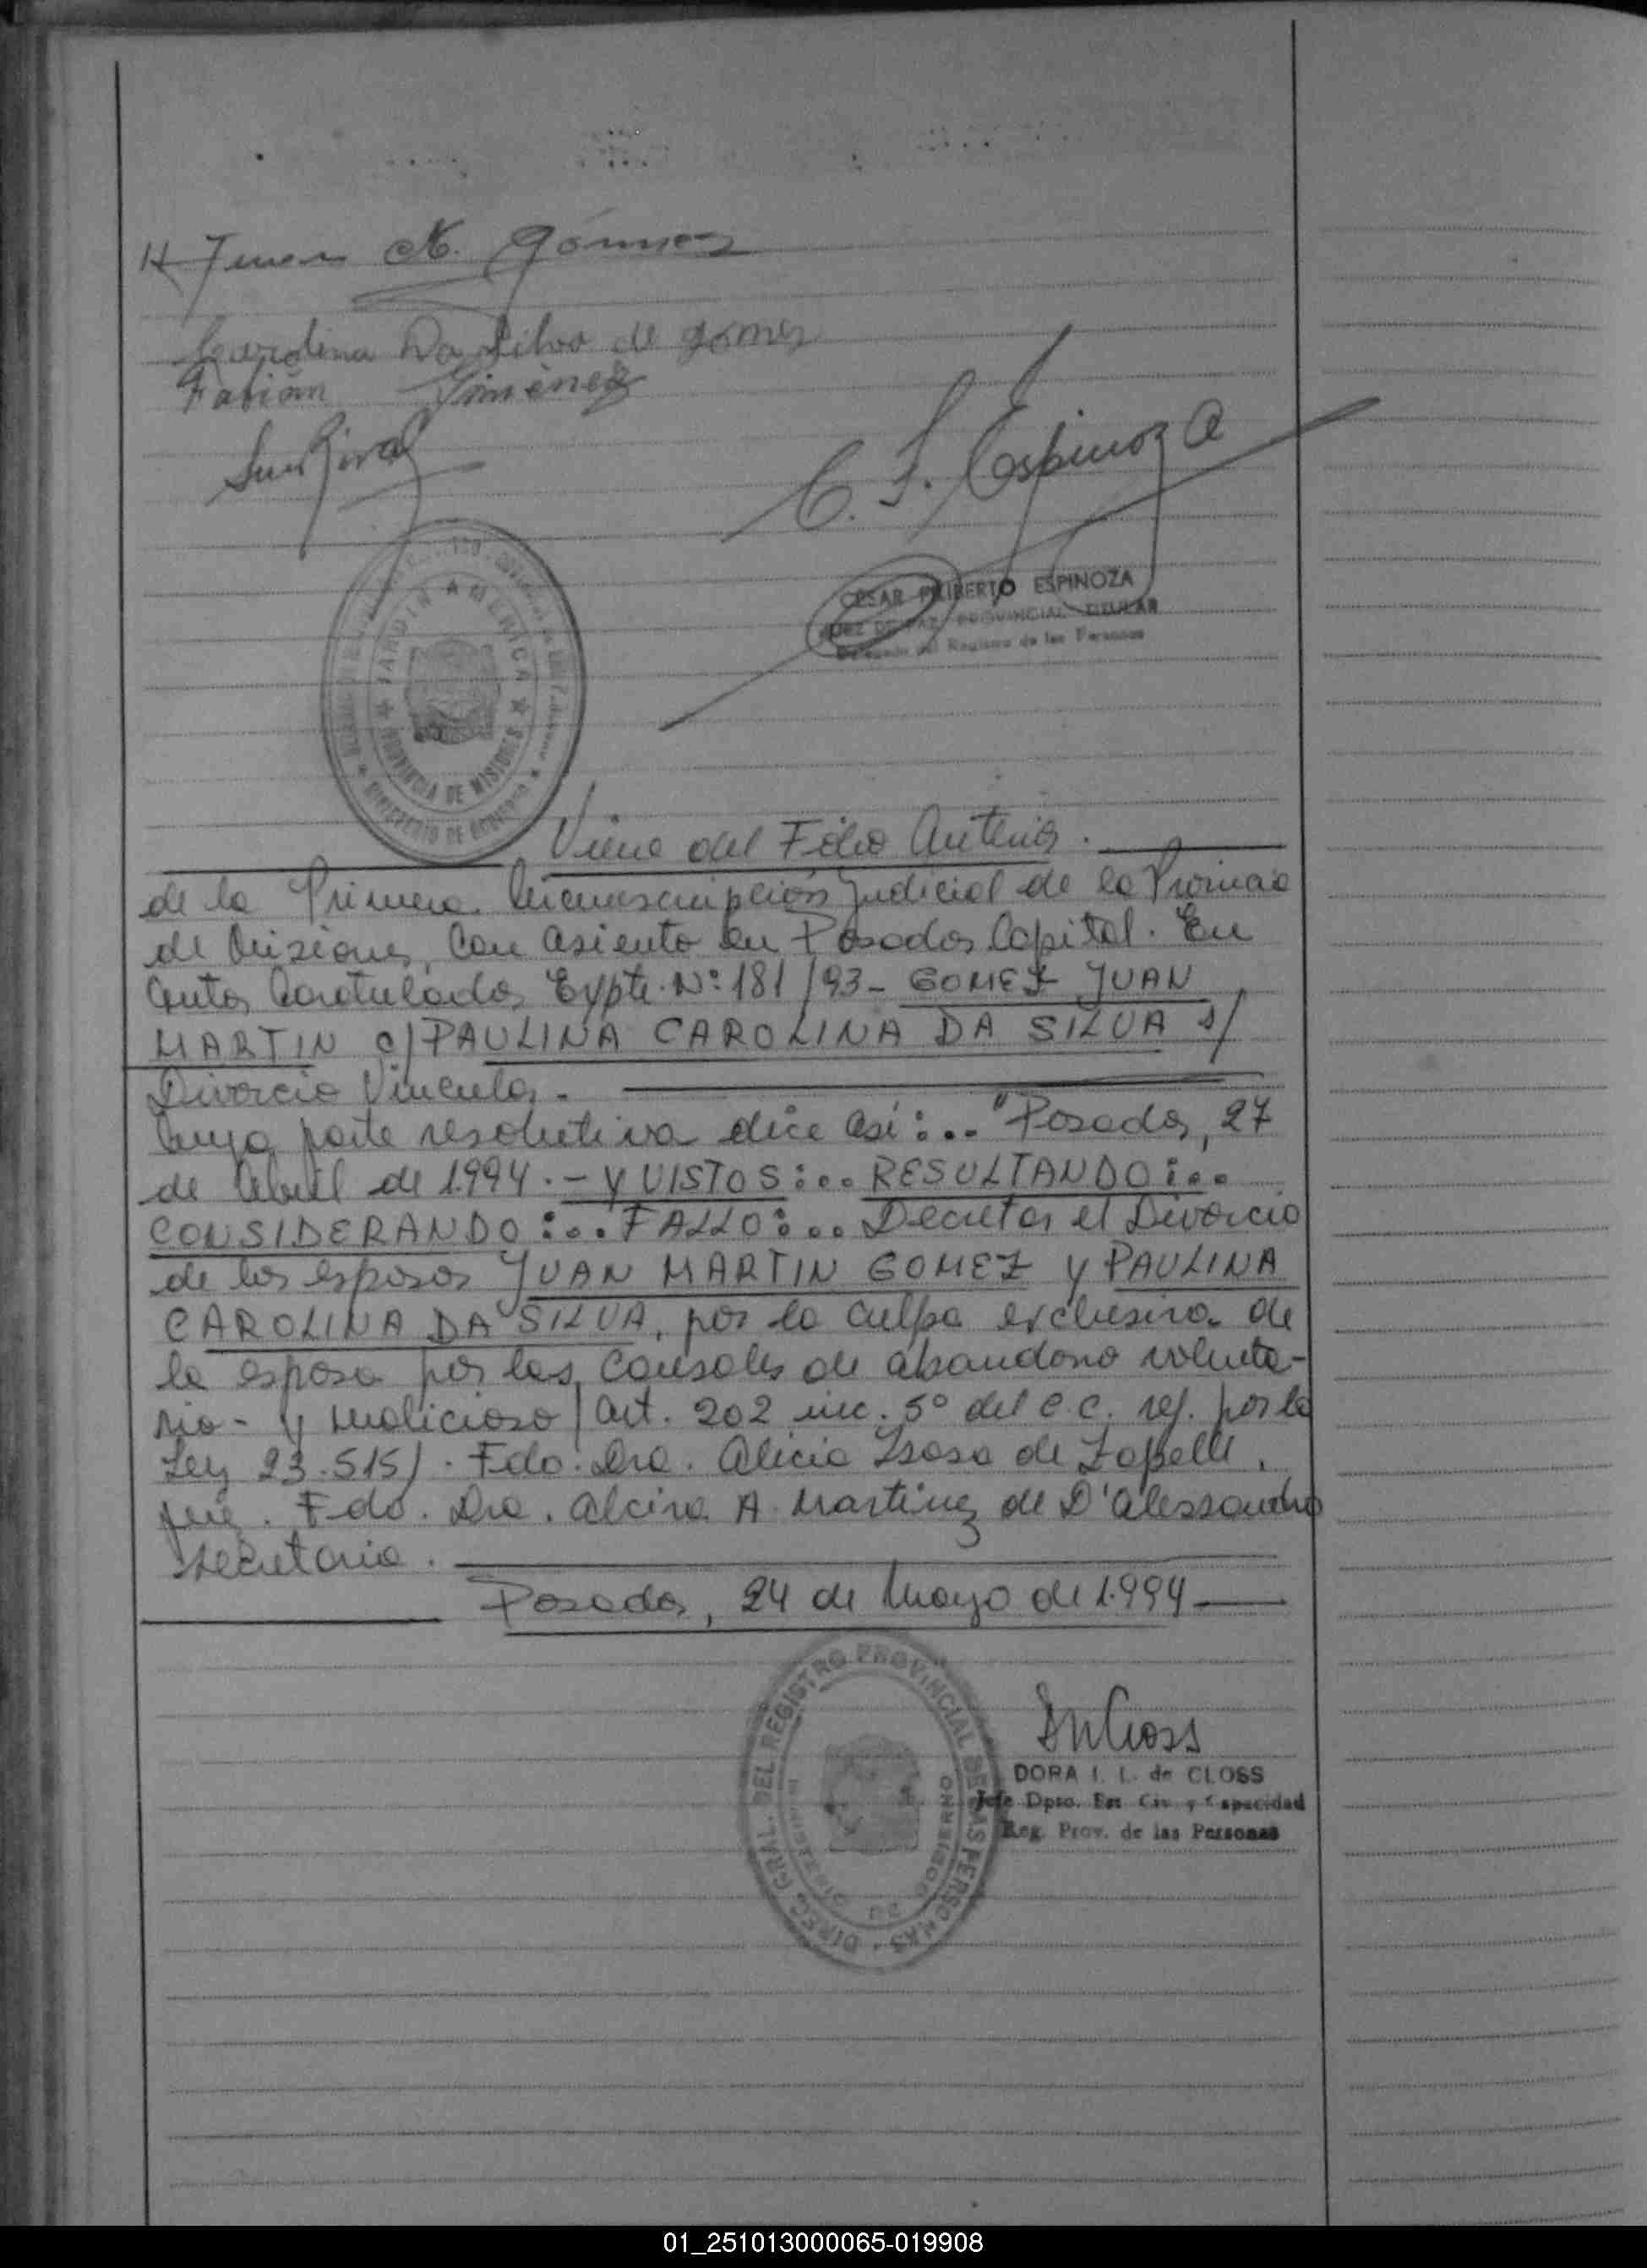 Juan M. Gómez
Carolina Da Silva de gomez
Fabián Giménez
C. F. Espinoza
CESAR FILIBERTO ESPINOZA
JUEZ DE PAZ PROVINCIAL TITULAR
Delegado del Registro de las Personas
JARDIN AMERICA
PROVINCIA DE MISIONES
MINISTERIO DE GOBIERNO
Viene del Folio Anterior.
de la Primera Circunscripción Judicial de la Provincia
de Misiones, Con asiento en Posadas Capital. En
autos Caratulados Expte. Nº: 181/93- GOMEZ JUAN
MARTIN c/ PAULINA CAROLINA DA SILVA s/
Divorcio Vincular.
Cuya parte resolutiva dice así:.. "Posadas, 27
de Abril de 1.994.- Y VISTOS:... RESULTANDO:..
CONSIDERANDO:... FALLO:... Decretar el Divorcio
de los esposos JUAN MARTIN GOMEZ y PAULINA
CAROLINA DA SILVA, por la culpa exclusiva de
la esposa por las Causales de abandono volunta-
rio- y malicioso (art. 202 inc. 5º del C.C. ref. por la
Ley 23.515). Fdo. Dra. Alicia de Zapelli.
Juez. Fdo. Dra. Alcira A. Martinez de D'alessandro
Secretaria.
Posadas, 24 de Mayo de 1.994
DIREC. GRAL. DEL REGISTRO PROVINCIAL DE LAS PERSONAS
MINISTERIO DE GOBIERNO
DORA I. L. de CLOSS
Jefe Dpto. Est. Civ. y Capacidad
Reg. Prov. de las Personas
01_251013000065-019908